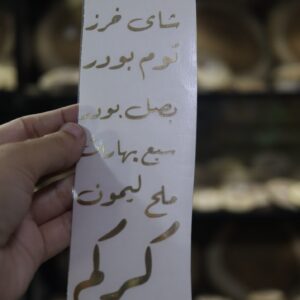 شاى فرز
ثوم بودر
بصل بودر
سبع بهارات
ملح ليمون
كركم